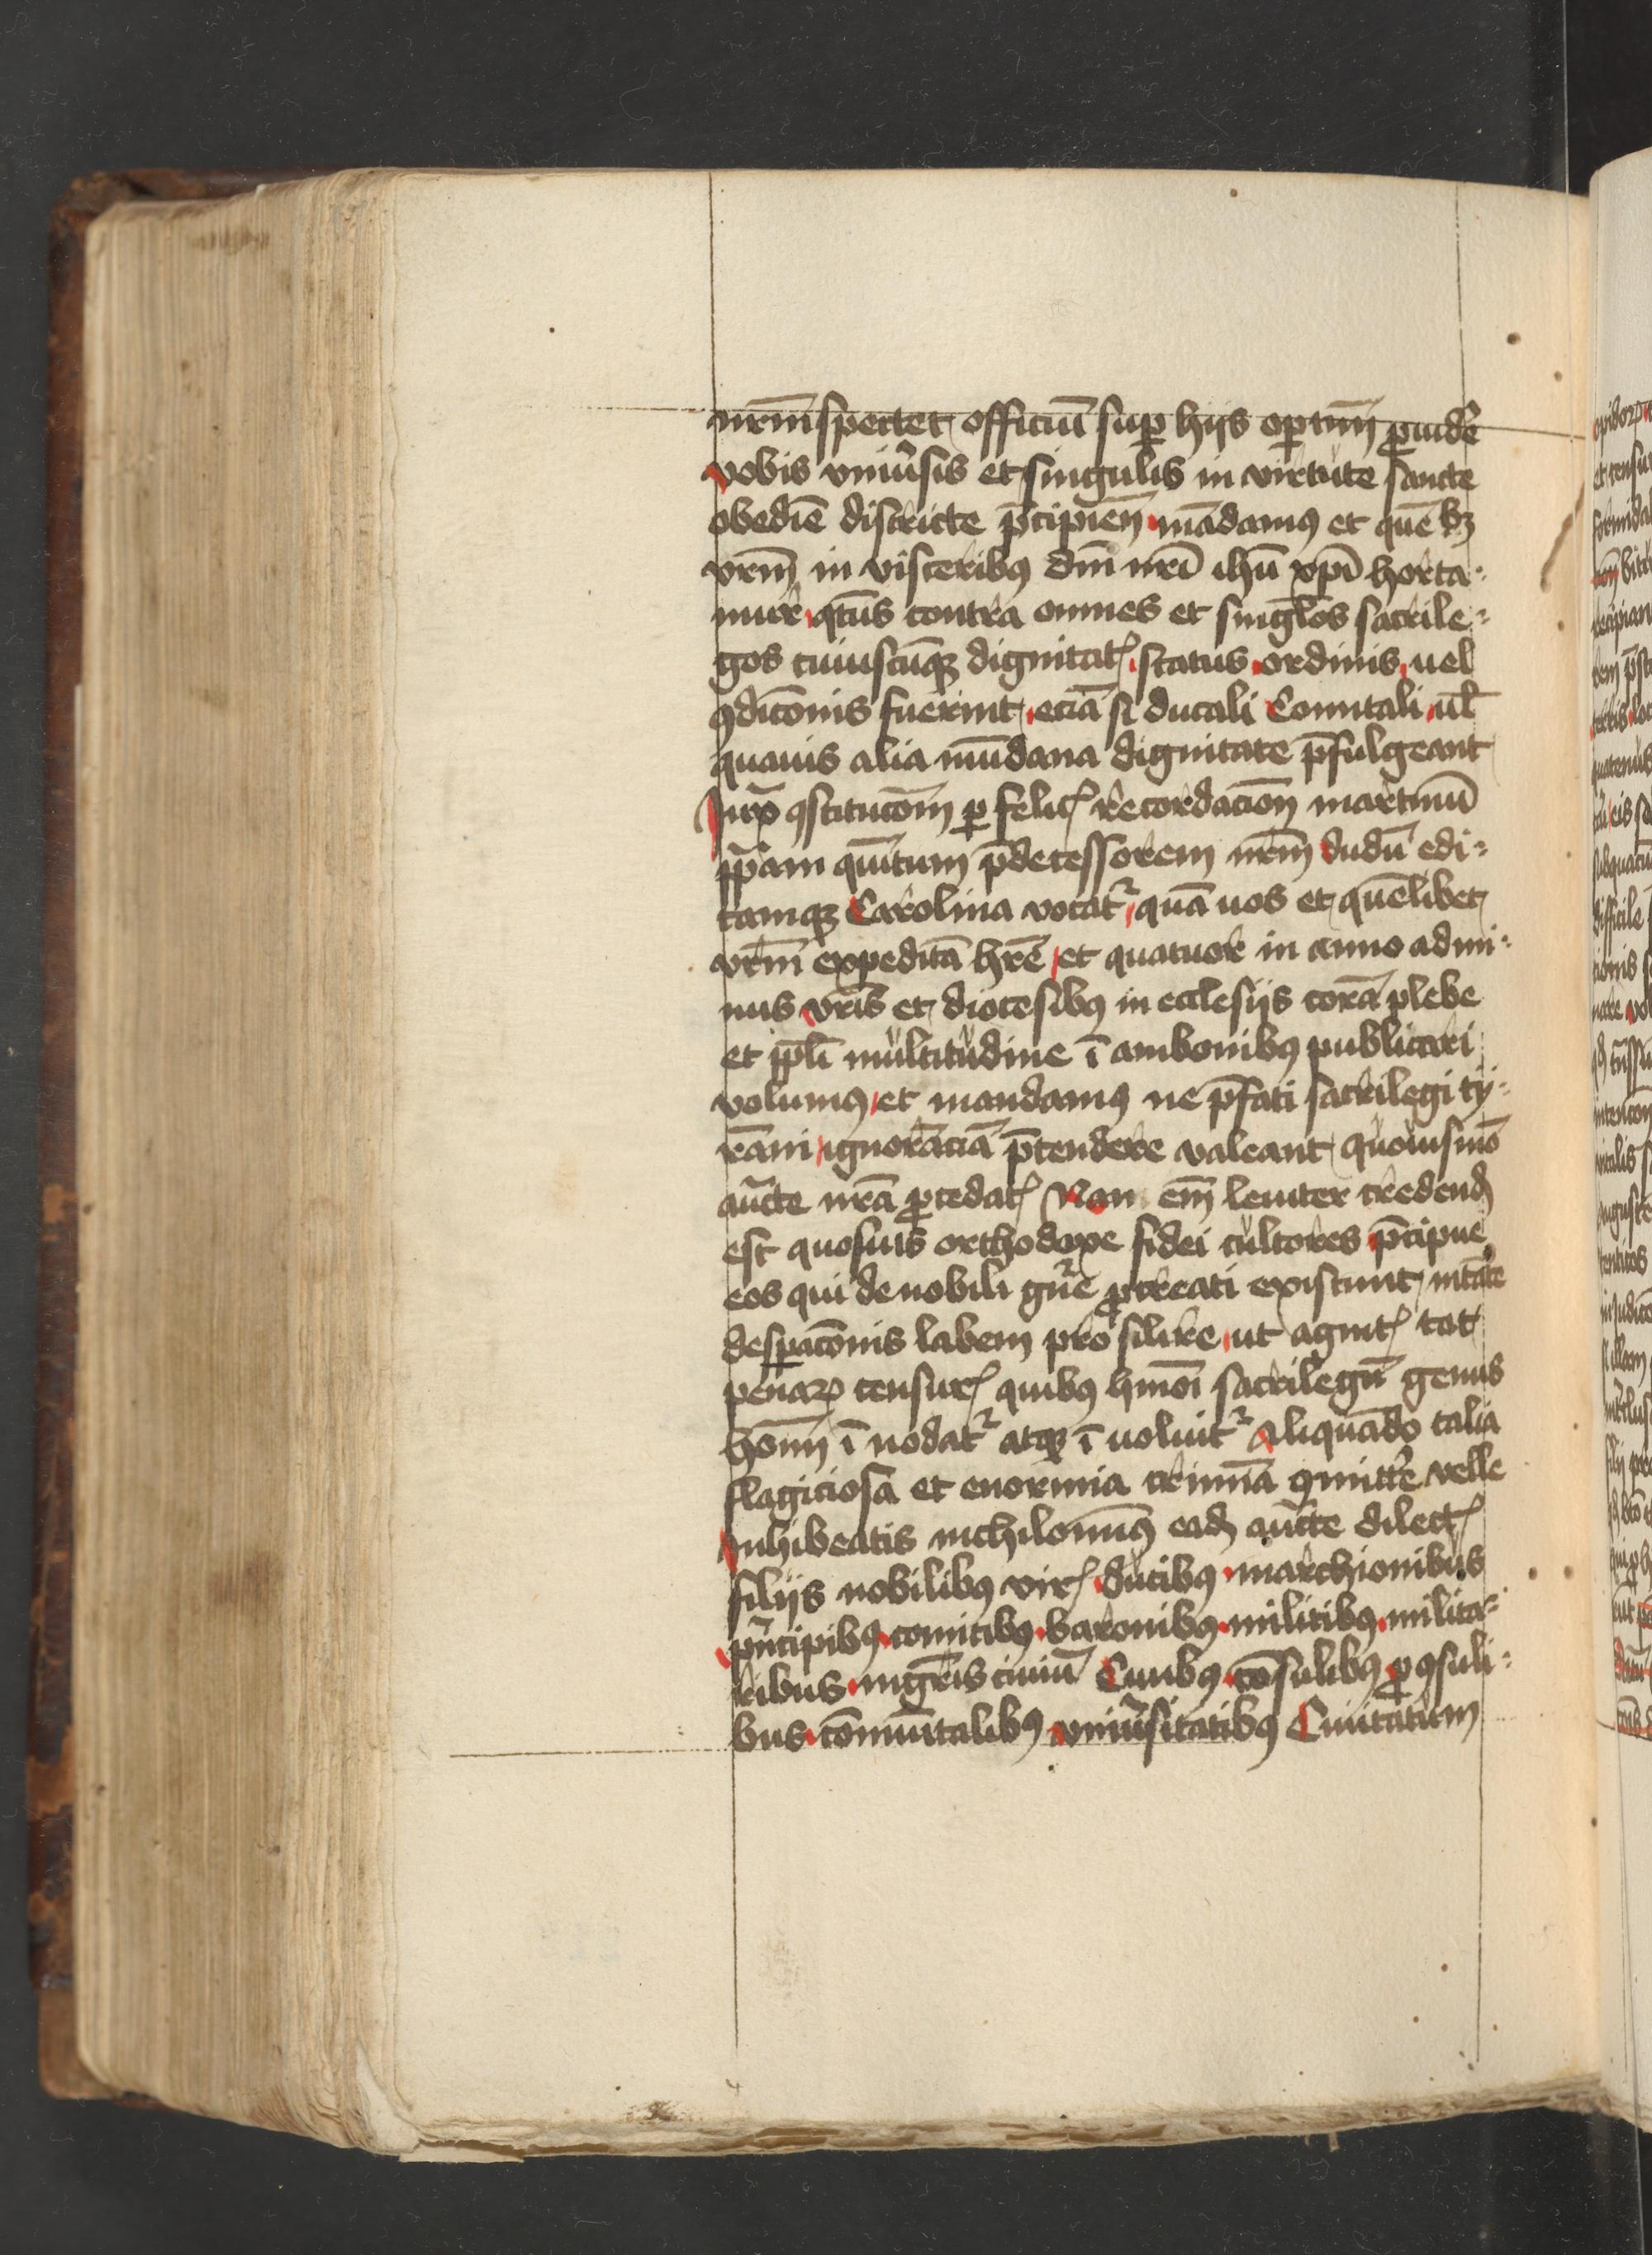 nrm̄ spectet officiū suꝑ hijs oꝑtun̄ ꝓuidē
vobis vniu͛sis et singulis in virtute sancte
obediē districte p̄cipien̄ mādamus et quēlꝫ
vr̄m in visceribꝰ dn̄i nr̄i ihū xp̄i horta⸗
mur qt̄us contra omnes et singl̄os sacrile⸗
gos cuiuscūqꝫ dignitatꝭ status ordinis uel
ꝯdic̄onis fuerint eciā si ducali Comitali ul̄
quauis alia mūdana dignitate p̄fulgeant
Iux̄ ꝯstituc̄om ꝑ felicꝭ recordacion̄ martinū
pp̄am quītum p̄decessorem nr̄m dudū edi⸗
tamqꝫ Carolina vocat᷑ quā uos et quēlibet
vr̄m expeditā hr̄e et quatuor in anno
nus vr̄is et diocesibꝰ in ecclesijs corā plebe
et pp̄li multitudine ī ambonibꝰ publicari
volumꝰ et mandamꝰ ne p̄fati sacrilegi ty⸗
rāni ignorāciā p̄tendere valeant quouismō
auc̄te nr̄a ꝓcedatꝭ Non em̄ leuiter credend̄
est quosuis orthodoxe fidei cultores p̄cipue
eos qui de nobili gn̄e ꝓcreati existunt
desꝑac̄onis labem pro silire ut agnitꝭ tot
penaꝝ censurꝭ quibꝰ hmōi sacrilegū genus
hoīm ī nodat᷑ atqꝫ ī uoluit᷑ Aliquādo talia
flagiciosa et enormia crimīa ꝯmitt͛e velle
Inhibeatis nichilomīꝰ ead̄ auc̄te dilectꝭ
filijs nobilibꝰ virꝭ ducibꝰ marchionibus
pn̄cipibꝰ comitibꝰ baronibꝰ militibꝰ milita⸗
ribus mgr̄is ciuiū Ciuibꝰ cōsulibꝰ ꝓꝯsuli⸗
bus cōmūitalibꝰ vniu͛sitatibꝰ Ciuitatum